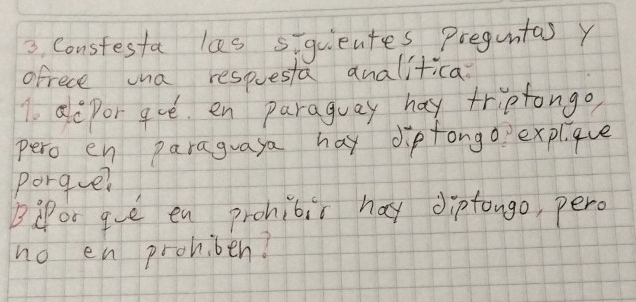 3. Constesta las siguientes Preguntas y
ofrece una respuesta analítica:
1. a¿Por qué. en paraguay hay triptongo,
pero en paraguaya hay diptongo? explique
porque?
B ¿Por qué en prohibir hay diptongo, pero
no en prohiben?